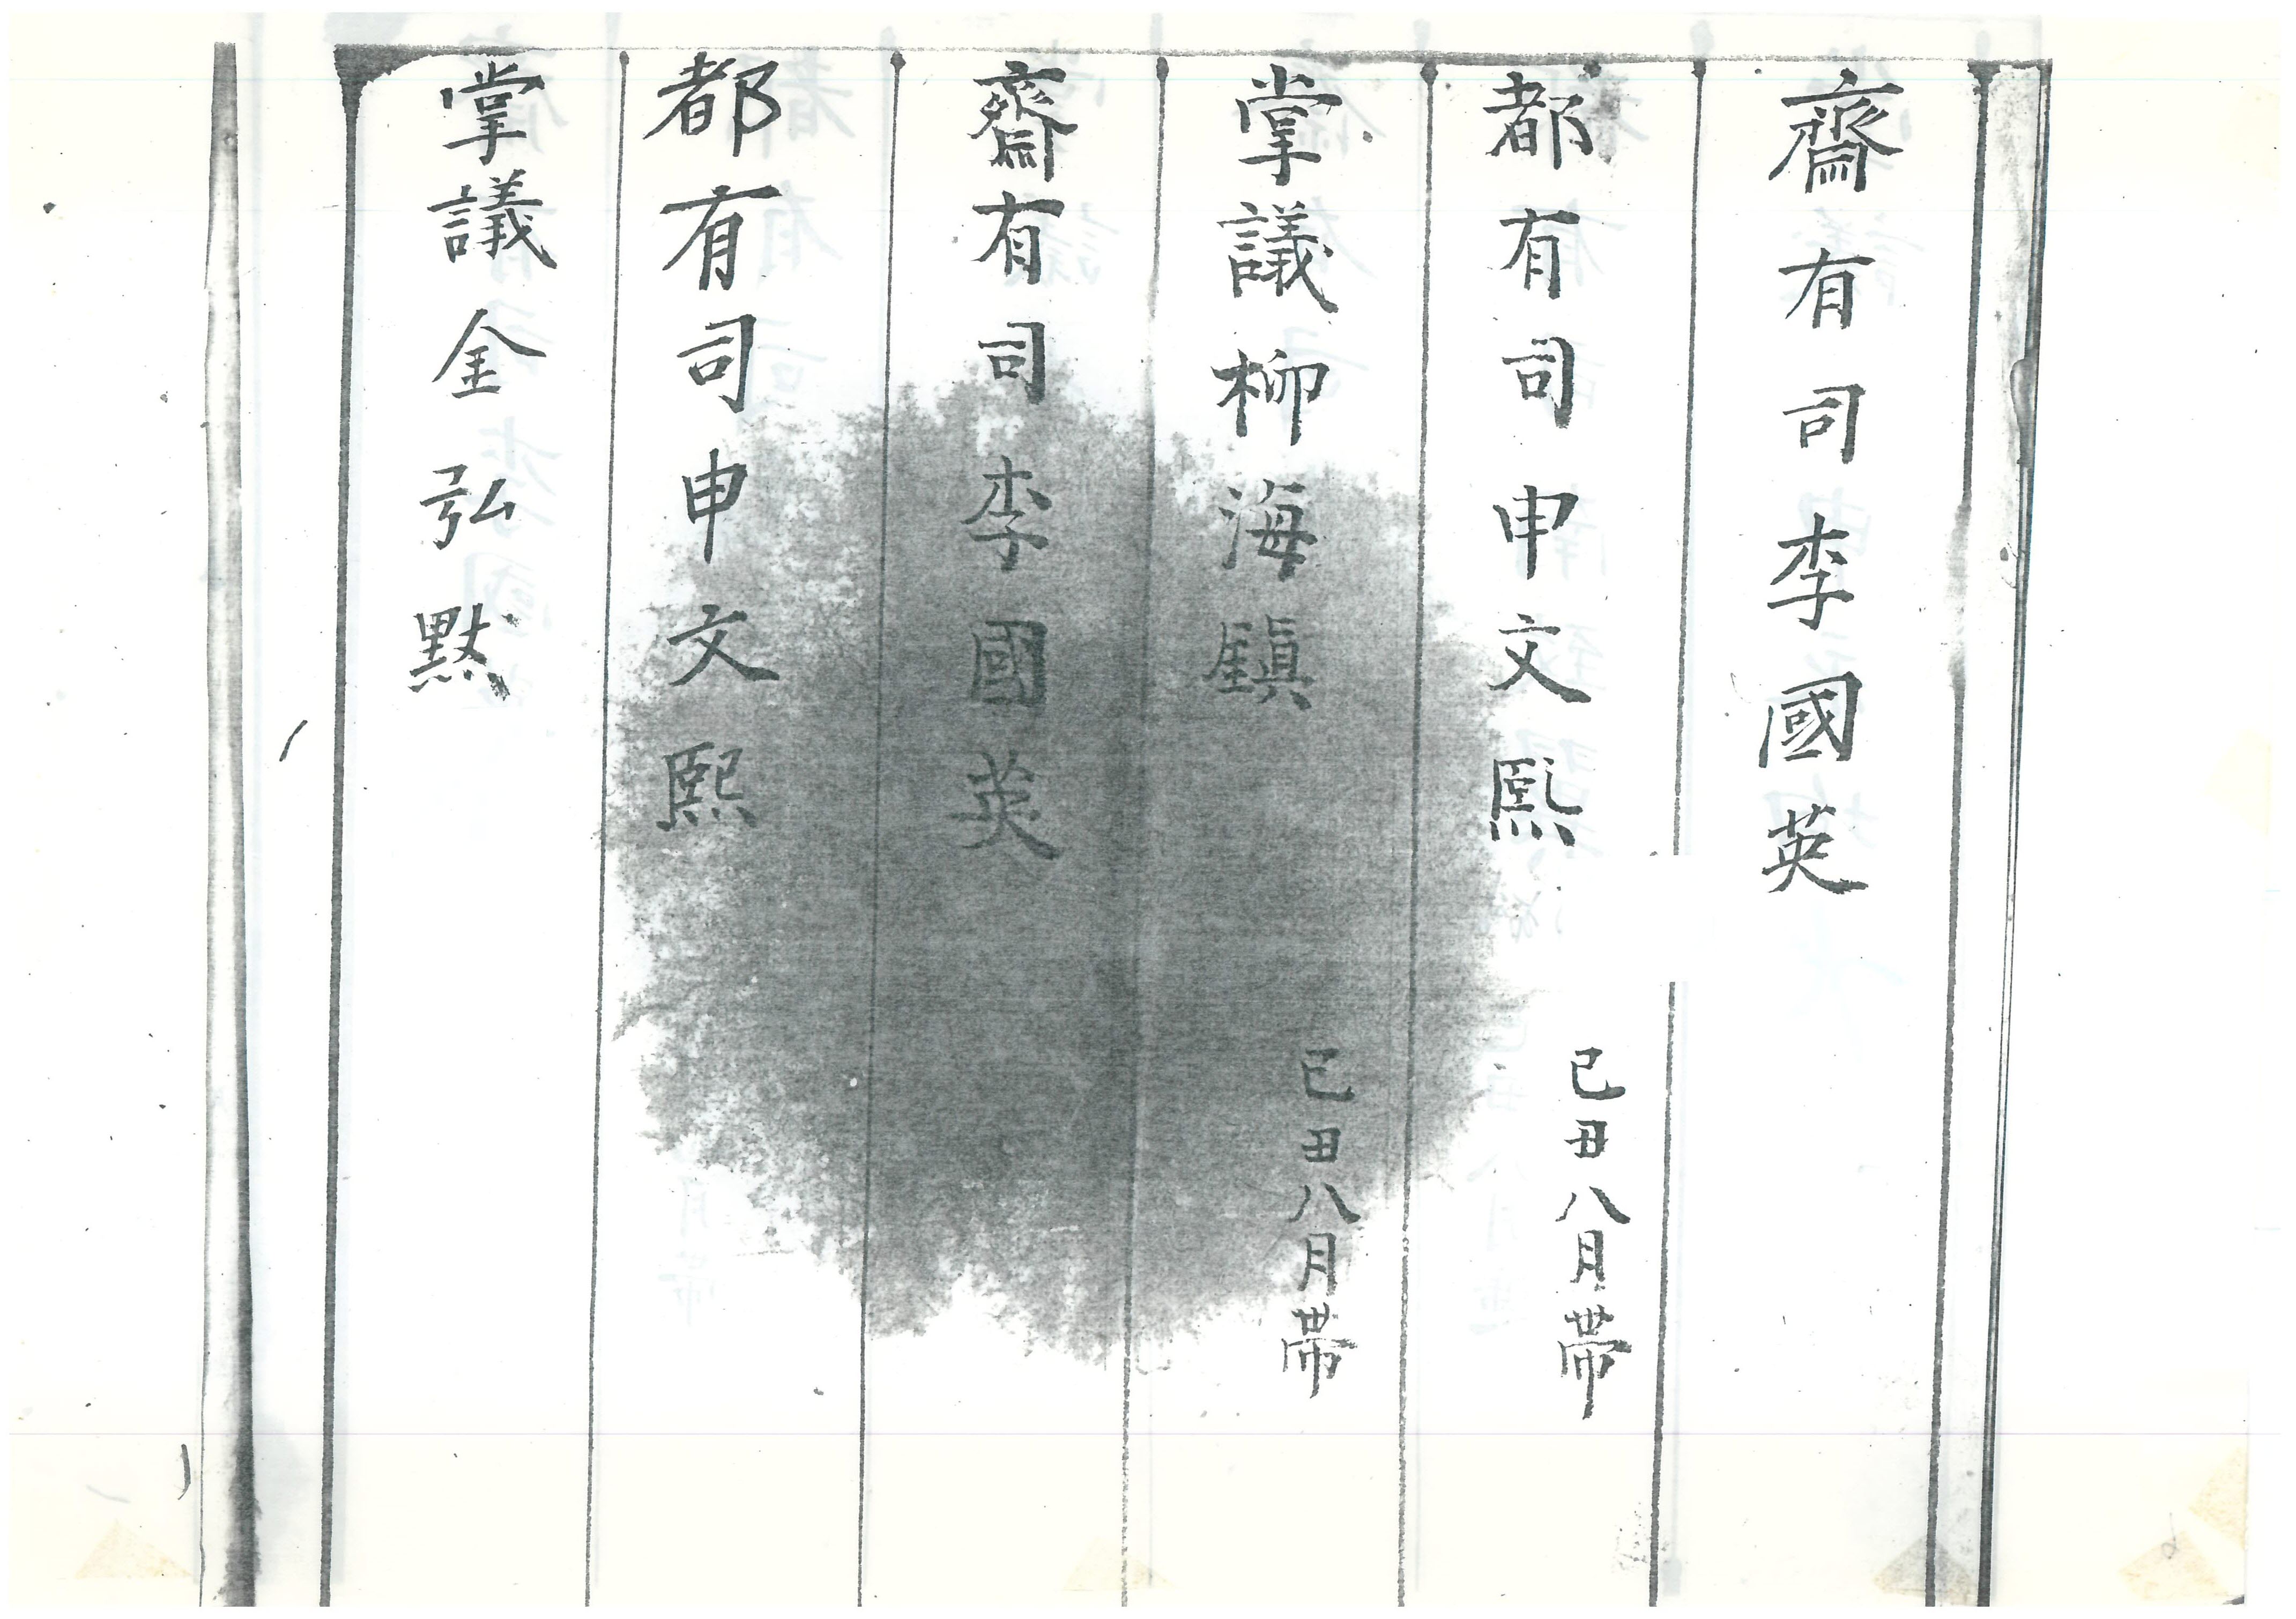 齋有司李國英
都有司申文熙 己丑八月帶
掌議柳海鎭 己丑八月帶
齋有司李國英
都有司申文熙
掌議金弘黙